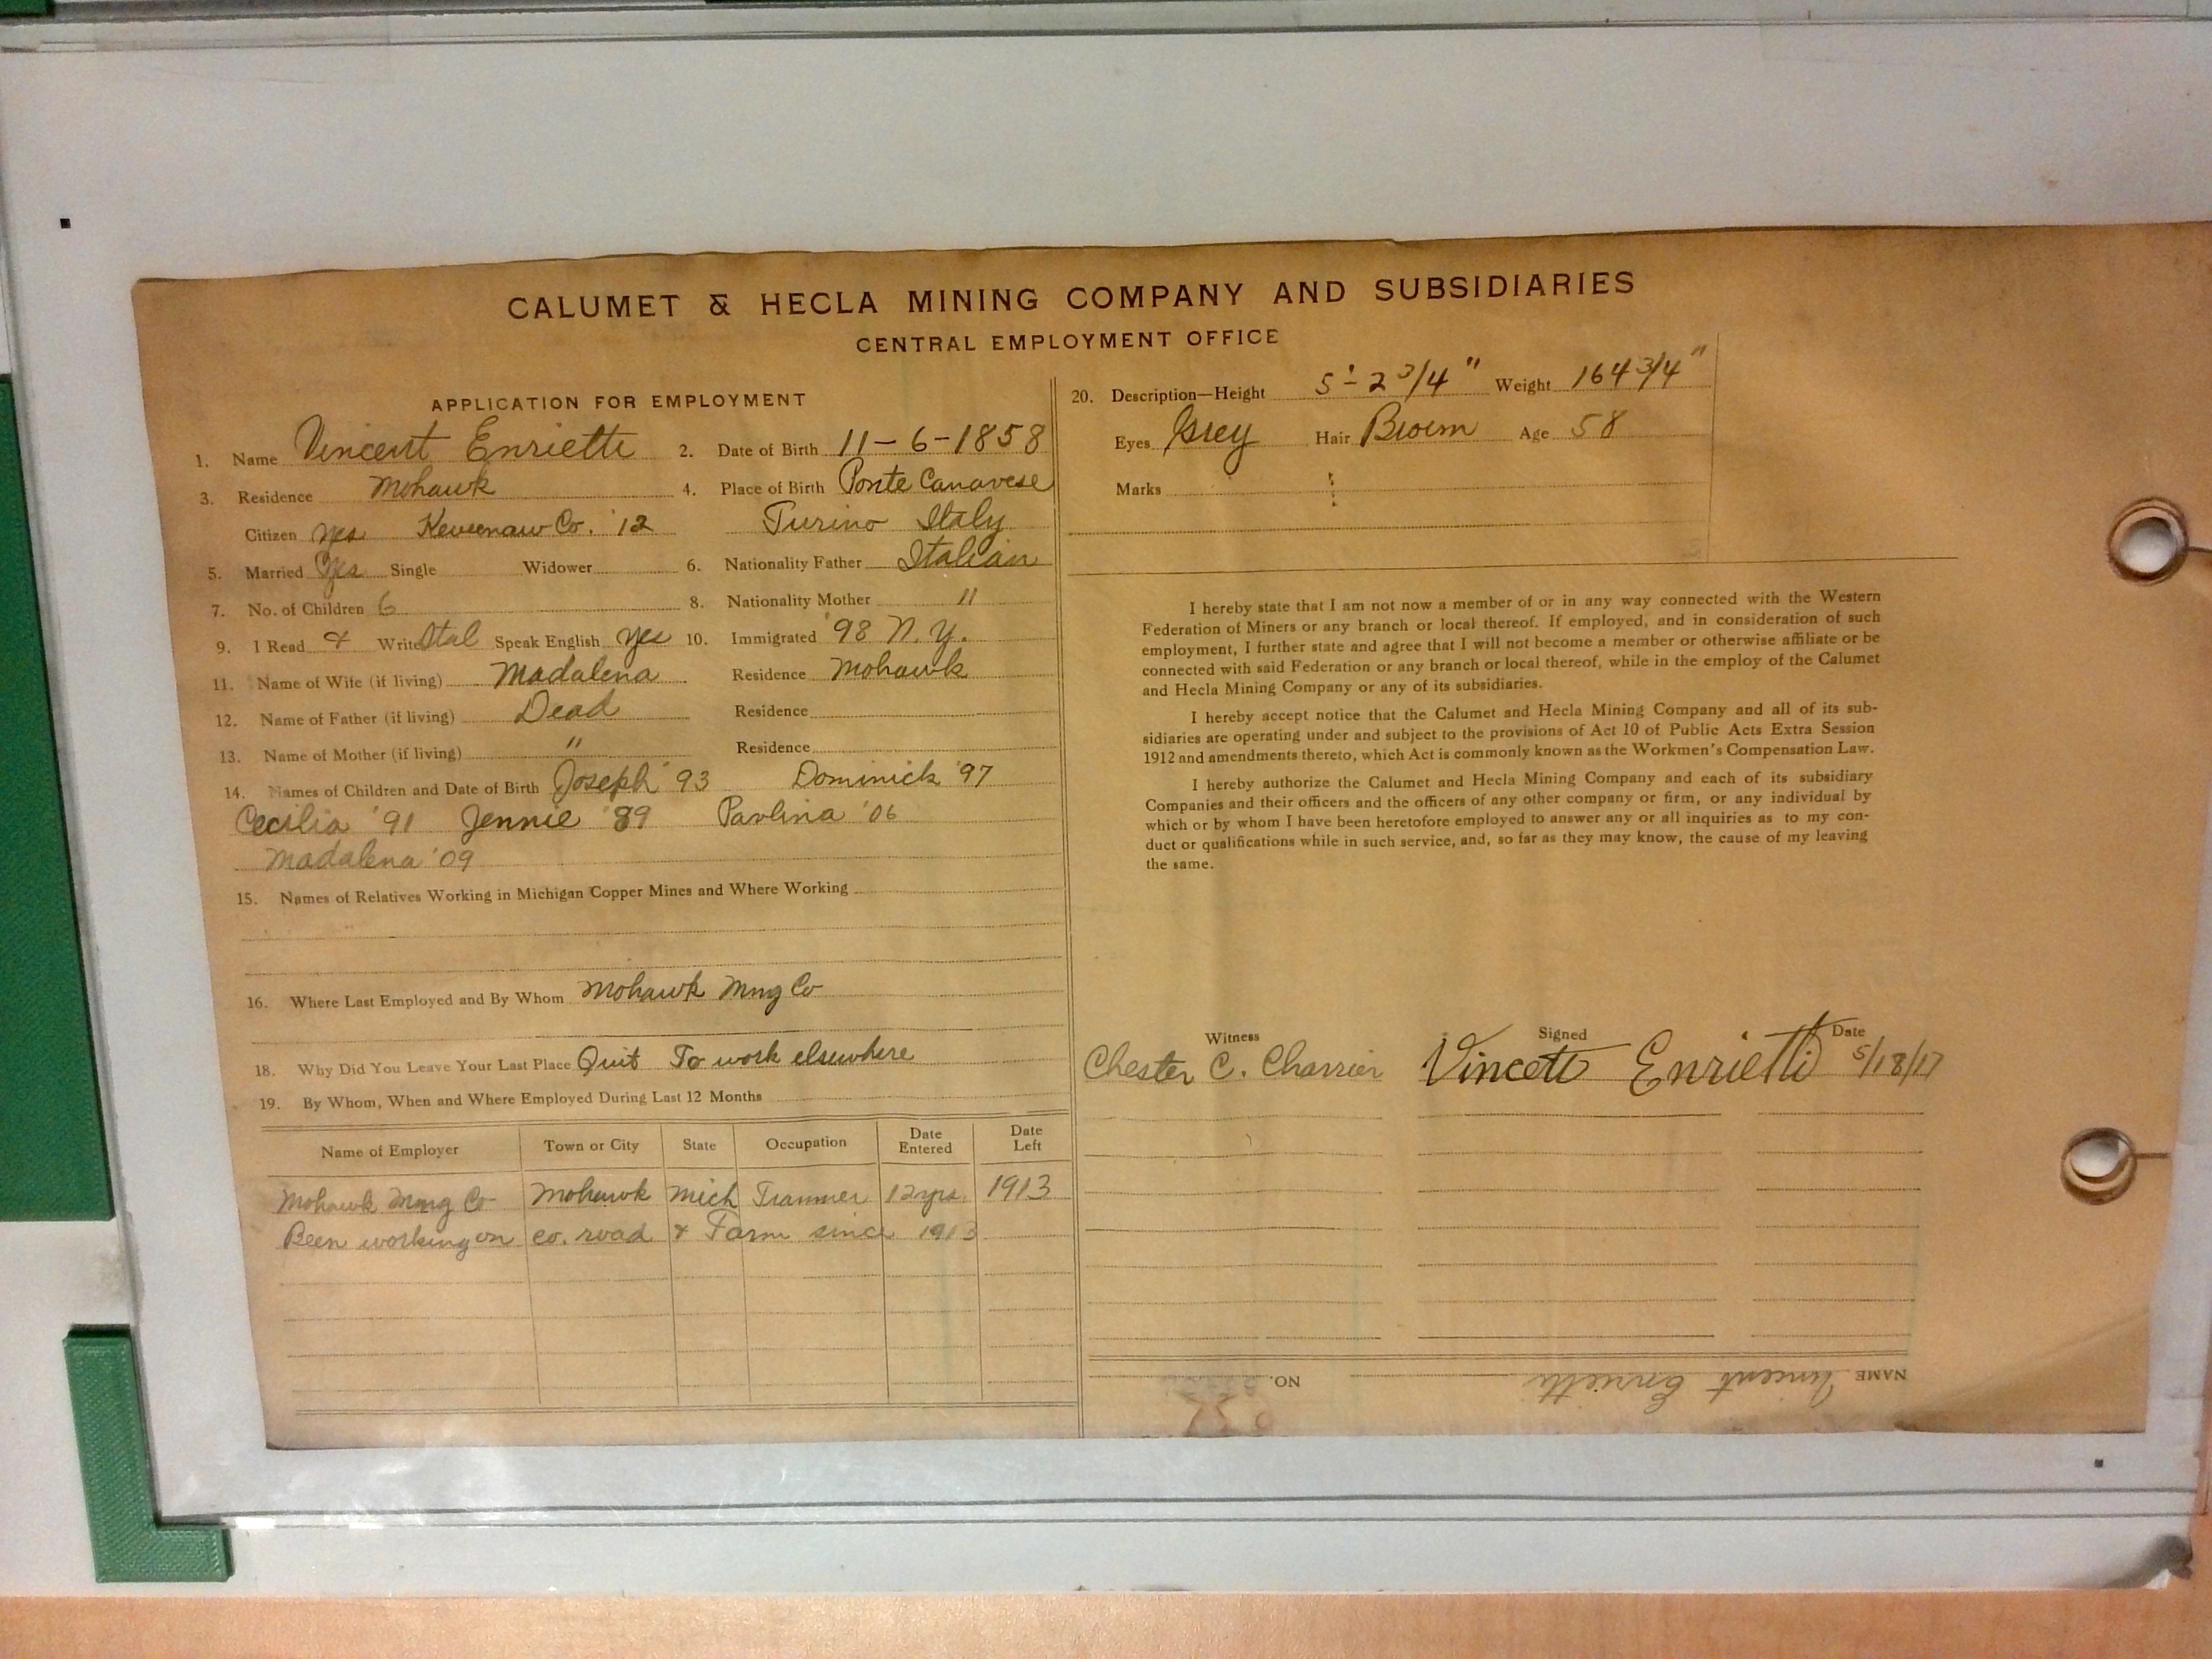 CALUMET & HECLA MINING COMPANY AND SUBSIDIARIES
CENTRAL EMPLOYMENT OFFICE
APPLICATION FOR EMPLOYMENT
1. Name Vincent Enrietti 2. Date of Birth 11-6-1858
3. Residence Mohawk 4. Place of Birth Ponte Canavese
Citizen Yes Keweenaw Co. '12 Turino Italy
5. Married Yes Single Widower 6. Nationality Father Italian
7. No. of Children 6 8. Nationality Mother "
9. I Read & Write Ital Speak English Yes 10. Immigrated '98 N.Y.
11. Name of Wife (if living) Madalena Residence Mohawk
12. Name of Father (if living) Dead Residence
13. Name of Mother (if living) " Residence
14. Names of Children and Date of Birth Joseph '93 Dominick '97
Cecilia '91 Jennie '89 Pavlina '06
Madalena '09
15. Names of Relatives Working in Michigan Copper Mines and Where Working
16. Where Last Employed and By Whom Mohawk Mng Co
18. Why Did You Leave Your Last Place Quit To work elsewhere
19. By Whom, When and Where Employed During Last 12 Months
Name of Employer Town or City State Occupation Date Entered Date Left
Mohawk Mng Co Mohawk Mich Trammer 12 yrs. 1913
Been working on co. road & Farm since 1913
20. Description—Height 5'-2 3/4" Weight 164 3/4"
Eyes Grey Hair Brown Age 58
Marks
I hereby state that I am not now a member of or in any way connected with the Western
Federation of Miners or any branch or local thereof. If employed, and in consideration of such
employment, I further state and agree that I will not become a member or otherwise affiliate or be
connected with said Federation or any branch or local thereof, while in the employ of the Calumet
and Hecla Mining Company or any of its subsidiaries.
I hereby accept notice that the Calumet and Hecla Mining Company and all of its sub-
sidiaries are operating under and subject to the provisions of Act 10 of Public Acts Extra Session
1912 and amendments thereto, which Act is commonly known as the Workmen's Compensation Law.
I hereby authorize the Calumet and Hecla Mining Company and each of its subsidiary
Companies and their officers and the officers of any other company or firm, or any individual by
which or by whom I have been heretofore employed to answer any or all inquiries as to my con-
duct or qualifications while in such service, and, so far as they may know, the cause of my leaving
the same.
Witness Signed Date
Chester C. Charrier Vincett Enrietti 5/18/17
NAME Vincent Enrietti NO.